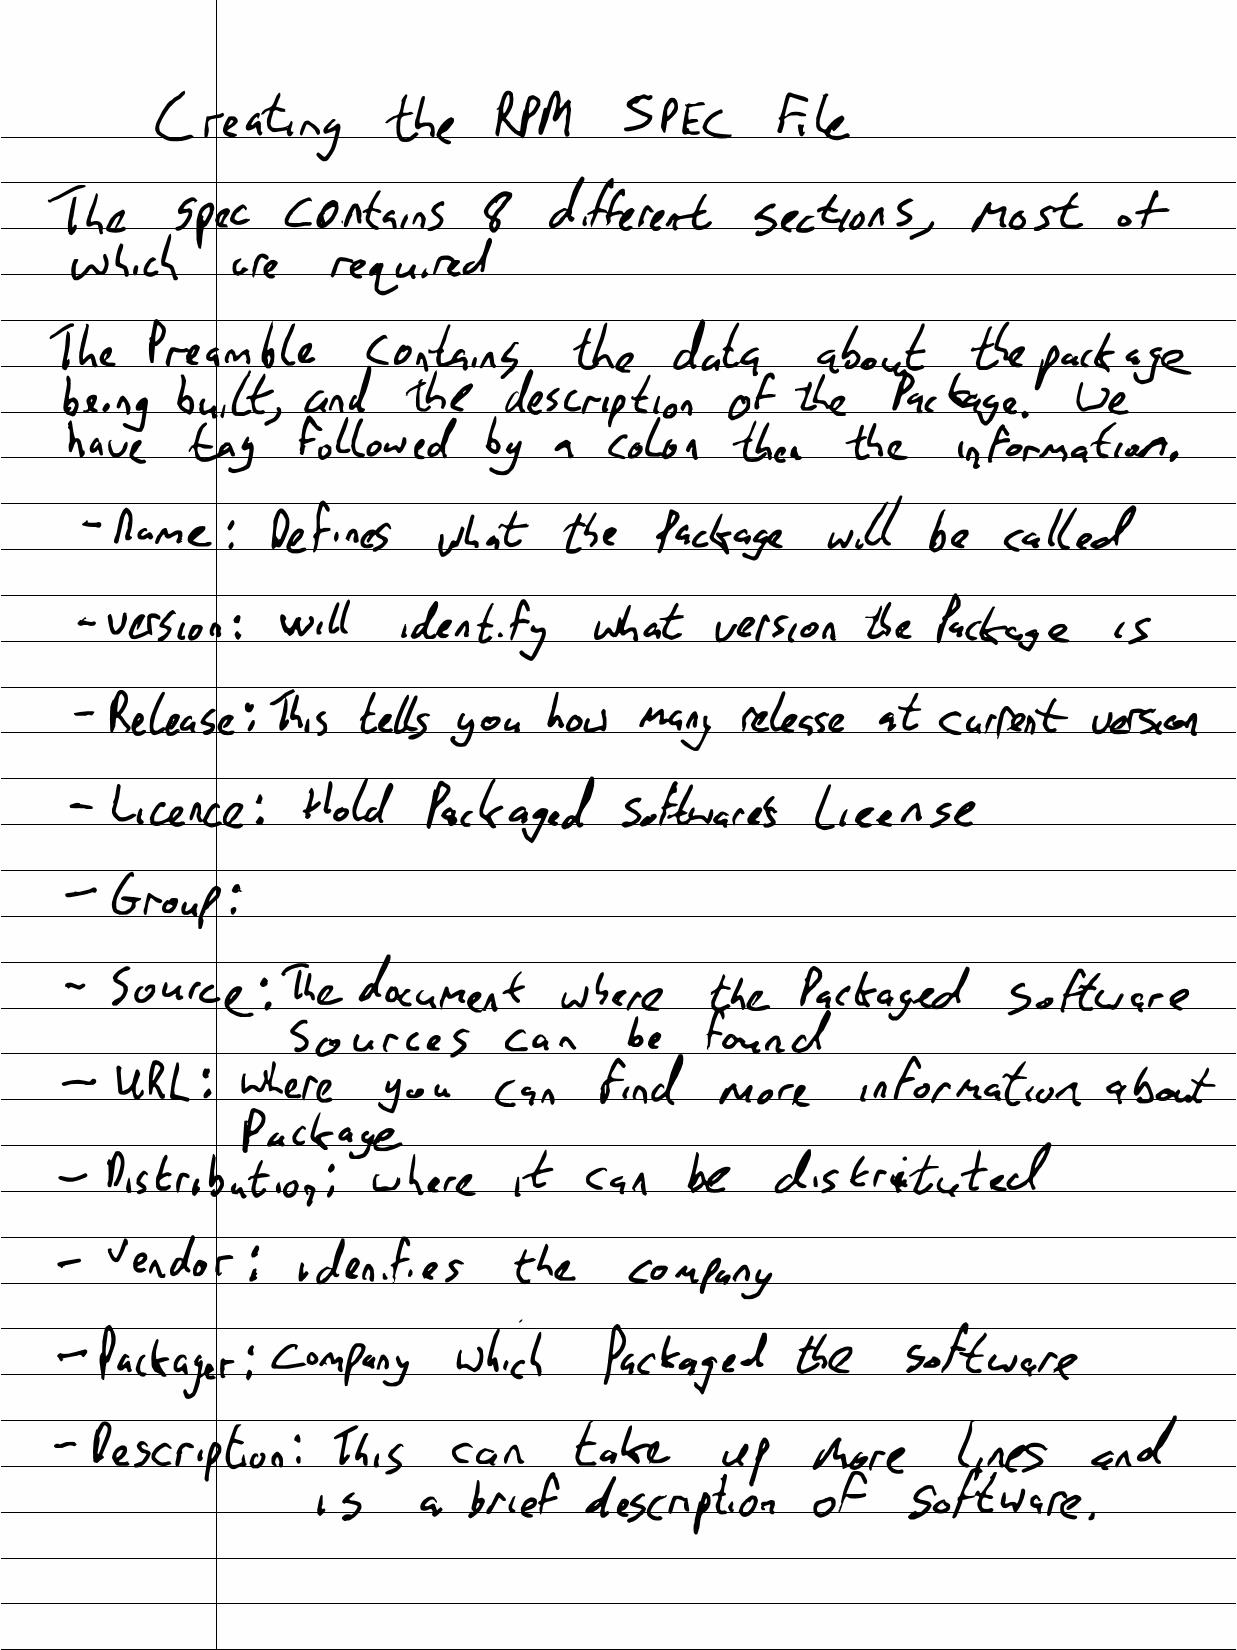 Creating the RPM SPEC File
The spec contains 8 different sections, most of
which are required
The Preamble contains the data about the package
being built, and the description of the Package. We
have tag followed by a colon then the information.
- Name: Defines what the Package will be called
- version: will identify what version the Package is
- Release: This tells you how many release at current version
- Licence: Hold Packaged software's License
- Group:
- Source: The document where the Packaged software
sources can be found
- URL: where you can find more information about
Package
- Distribution: where it can be distributed
- Vendor: idenifies the company
- Packager: Company which Packaged the software
- Description: This can take up more lines and
is a brief description of software.